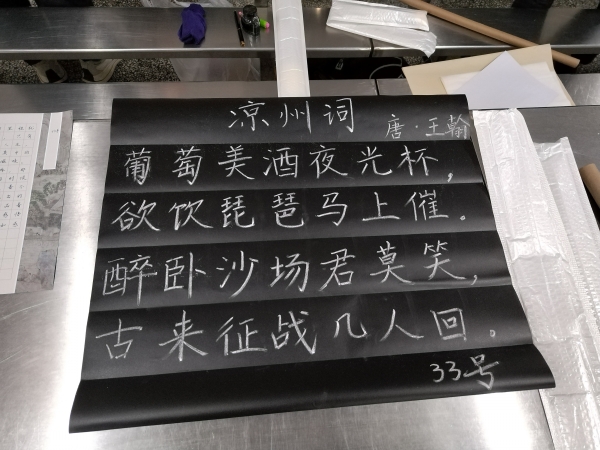 凉州词
唐·王翰
葡萄美酒夜光杯,
欲饮琵琶马上催。
醉卧沙场君莫笑,
古来征战几人回。
33号